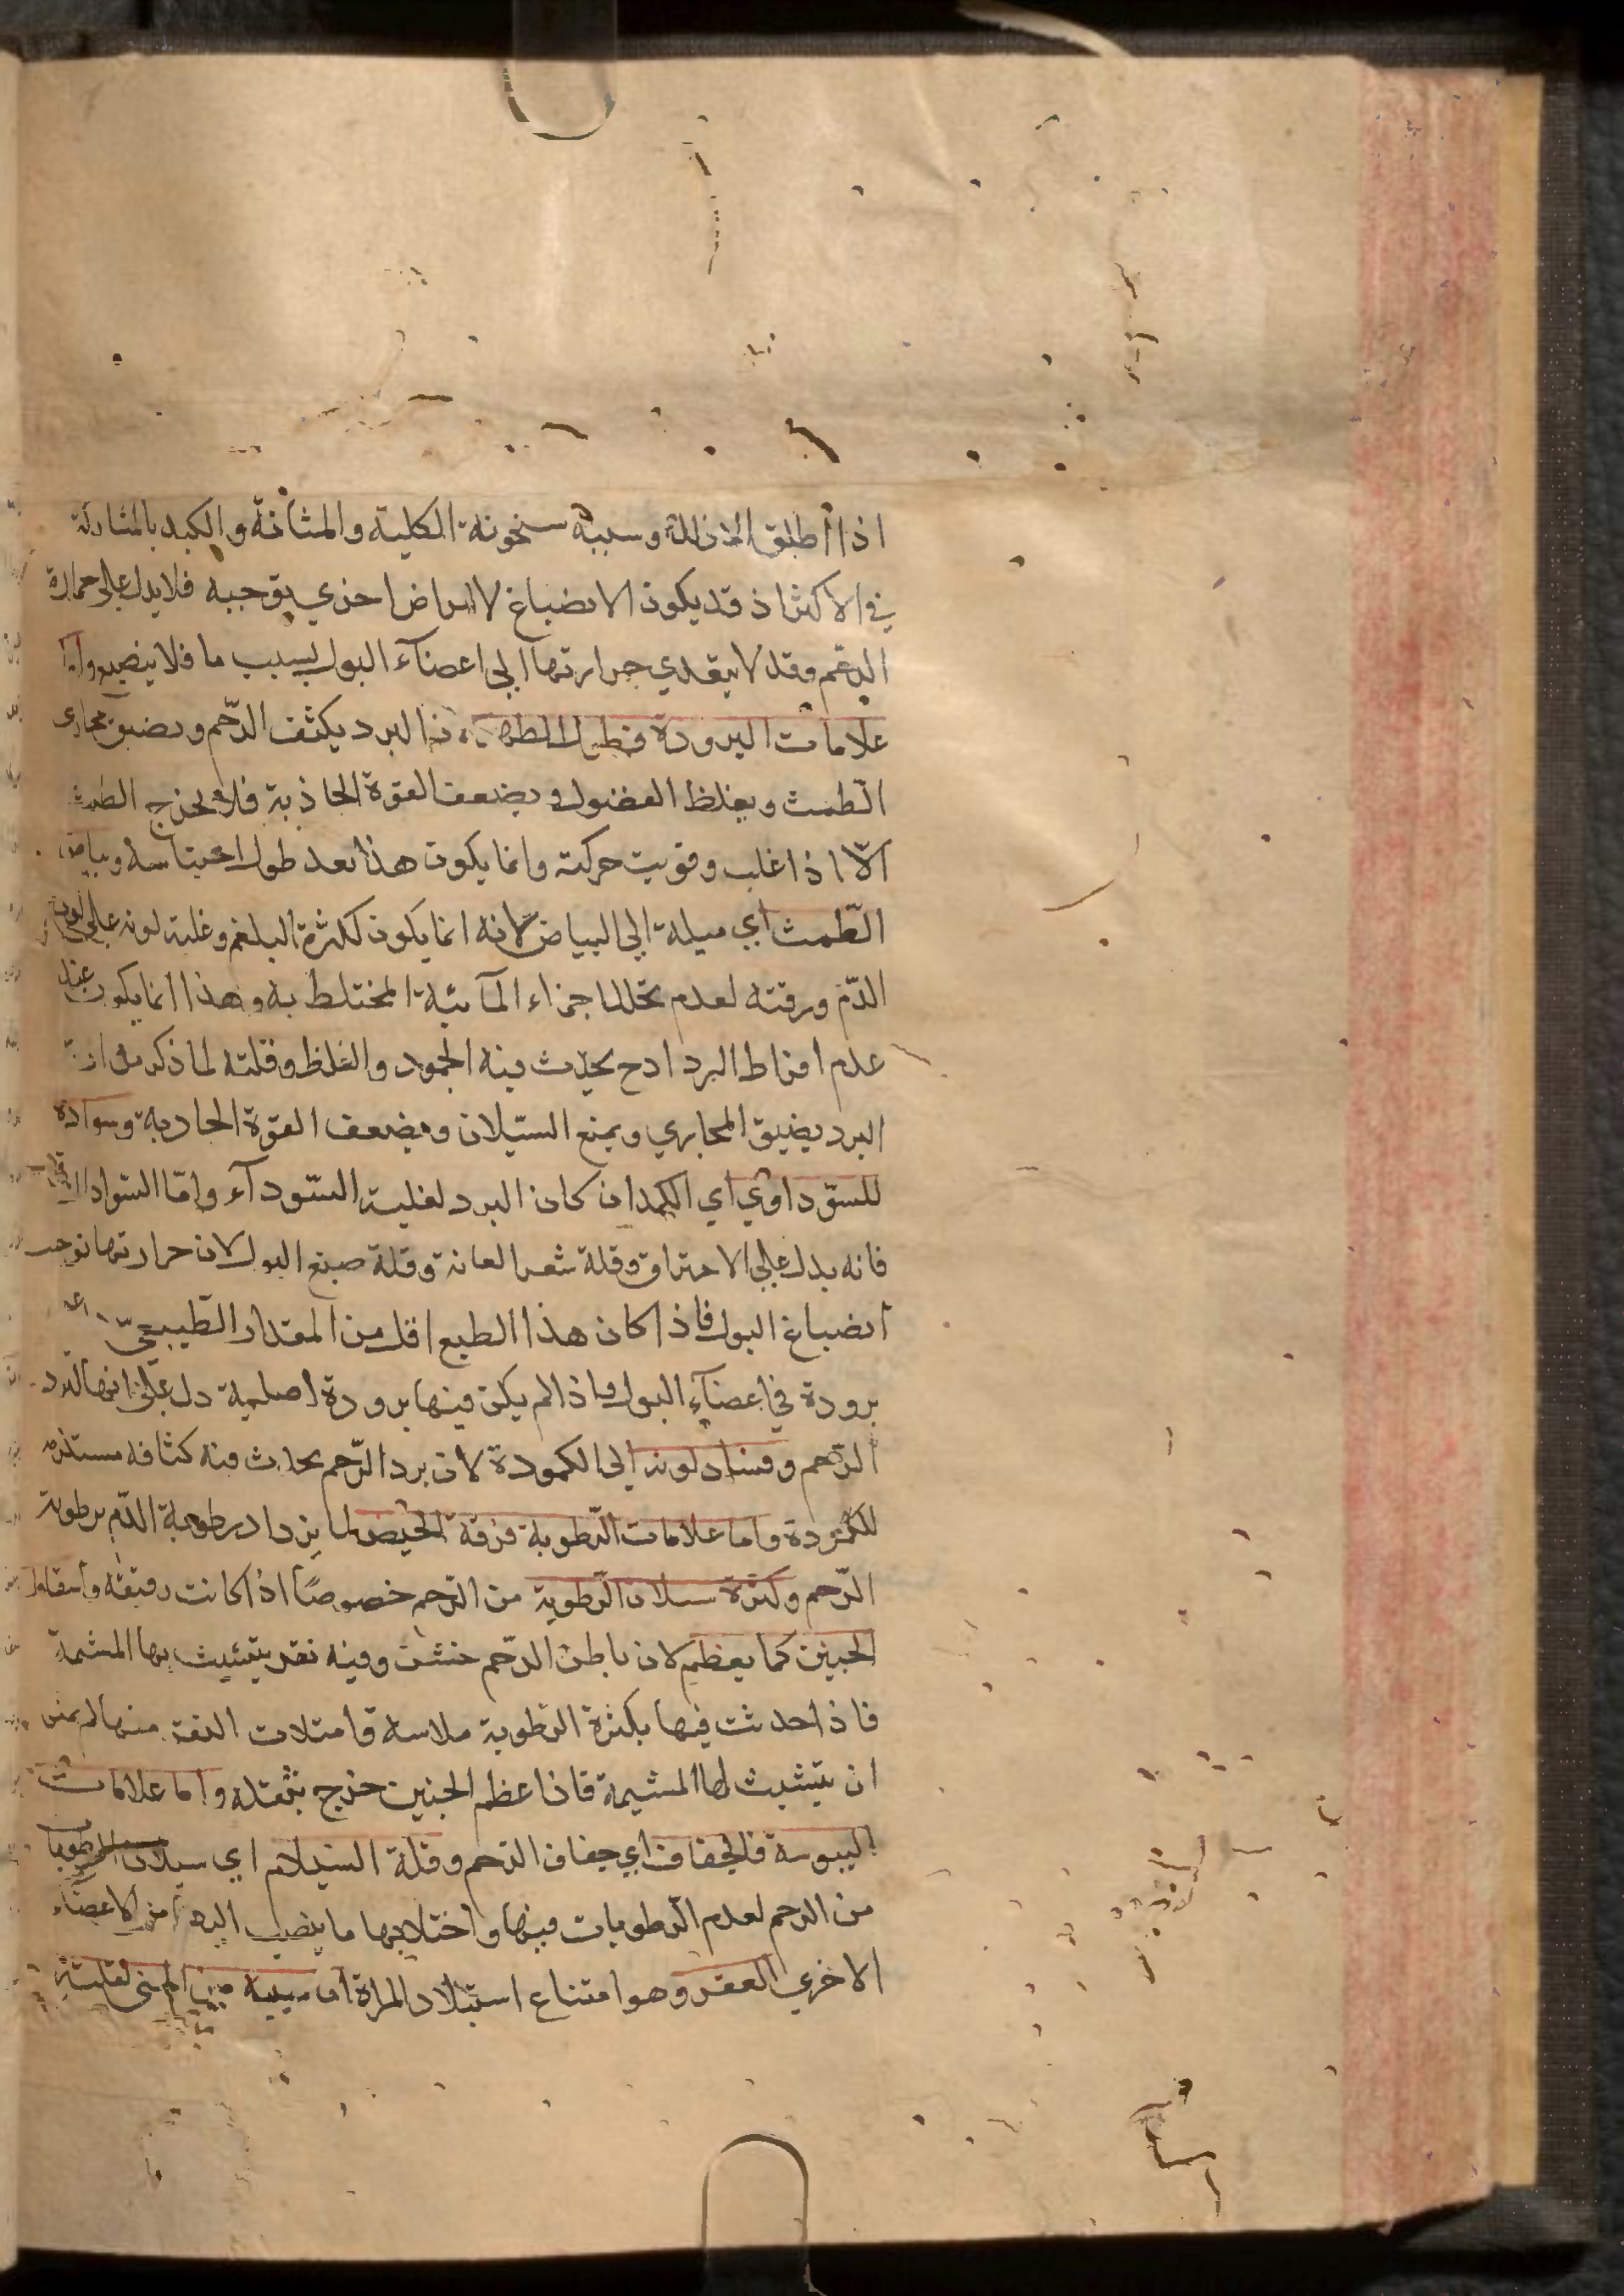 اذا أطلق الاذلك وسببه سخونة الكلية والمثانة والكبد بالمشاركة
في الاكثر اذ قد يكون الانصباغ لامراض اخري توجبه فلا يدل علي حرارة
الرحم وقد لا يتعدي حرارتها الي اعضآء البول بسبب ما فلا ينصبغ واما
علامات البرودة فطول الطهر لان البرد يكثف الرّحم ويضيق مجاري
الطمث ويغلظ الفضول ويضعف القوة الجاذبة فلا يخرج الطمث
الّا اذا غلب وقويت حركته وانما يكون هذا بعد طول احتباسه وبياض
الطّمث اي ميله الي البياض لانه انما يكون لكثرة البلغم وغلبة لونه علي لون
الدّم ورقته لعدم تحلل اجزاء المآئية المختلط به وهذا انما يكون عند
عدم افراط البرد اذ ح يحدث فيه الجمود والغلظ وقلته لما ذكر من ان
البرد يضيق المجاري ويمنع السّيلان ويضعف القوة الجاذبة وسواده
للسّوداوي اي الكمد ان كان البرد لغلبة السّودآء وامّا السّواد
فانه يدل علي الاحتراق وقلة شعر العانة وقلة صبغ البول لان حرارتها توجب
انصباغ البول فاذا كان هذا الطبع اقل من المقدار الطّبيعيّ
برودة في اعضآء البول واذا لم يكن فيها برودة اصلية دل علي انها لبرد
الرّحم وفساد لونه الي الكمودة لان برد الرّحم يحدث فيه كثافة مستلزمة
للكمودة واما علامات الرّطوبة فرقة الحيض لما يزداد رطوبة الدّم برطوبة
الرّحم وكثرة سيلان الرّطوبة من الرّحم خصوصًا اذا كانت رقيقة واسقاط
الجنين كما يعظم لان باطن الرّحم خشن وفيه نقر يتشبث بها المشيمة
فاذا حدثت فيها بكثرة الرّطوبة ملاسة وامتلات النقر منها لم يمكن
ان يتشبث لها المشيمة فاذا عظم الجنين خرج بثقله واما علامات
اليبوسة فالجفاف اي جفاف الرّحم وقلة السّيلان اي سيلان الرطوبات
من الرحم لعدم الرّطوبات فيها واختلاجها ما ينصب اليه من الاعضآء
الاخري العقر وهو امتناع استيلاد المراة اما سببه من المني لقلته